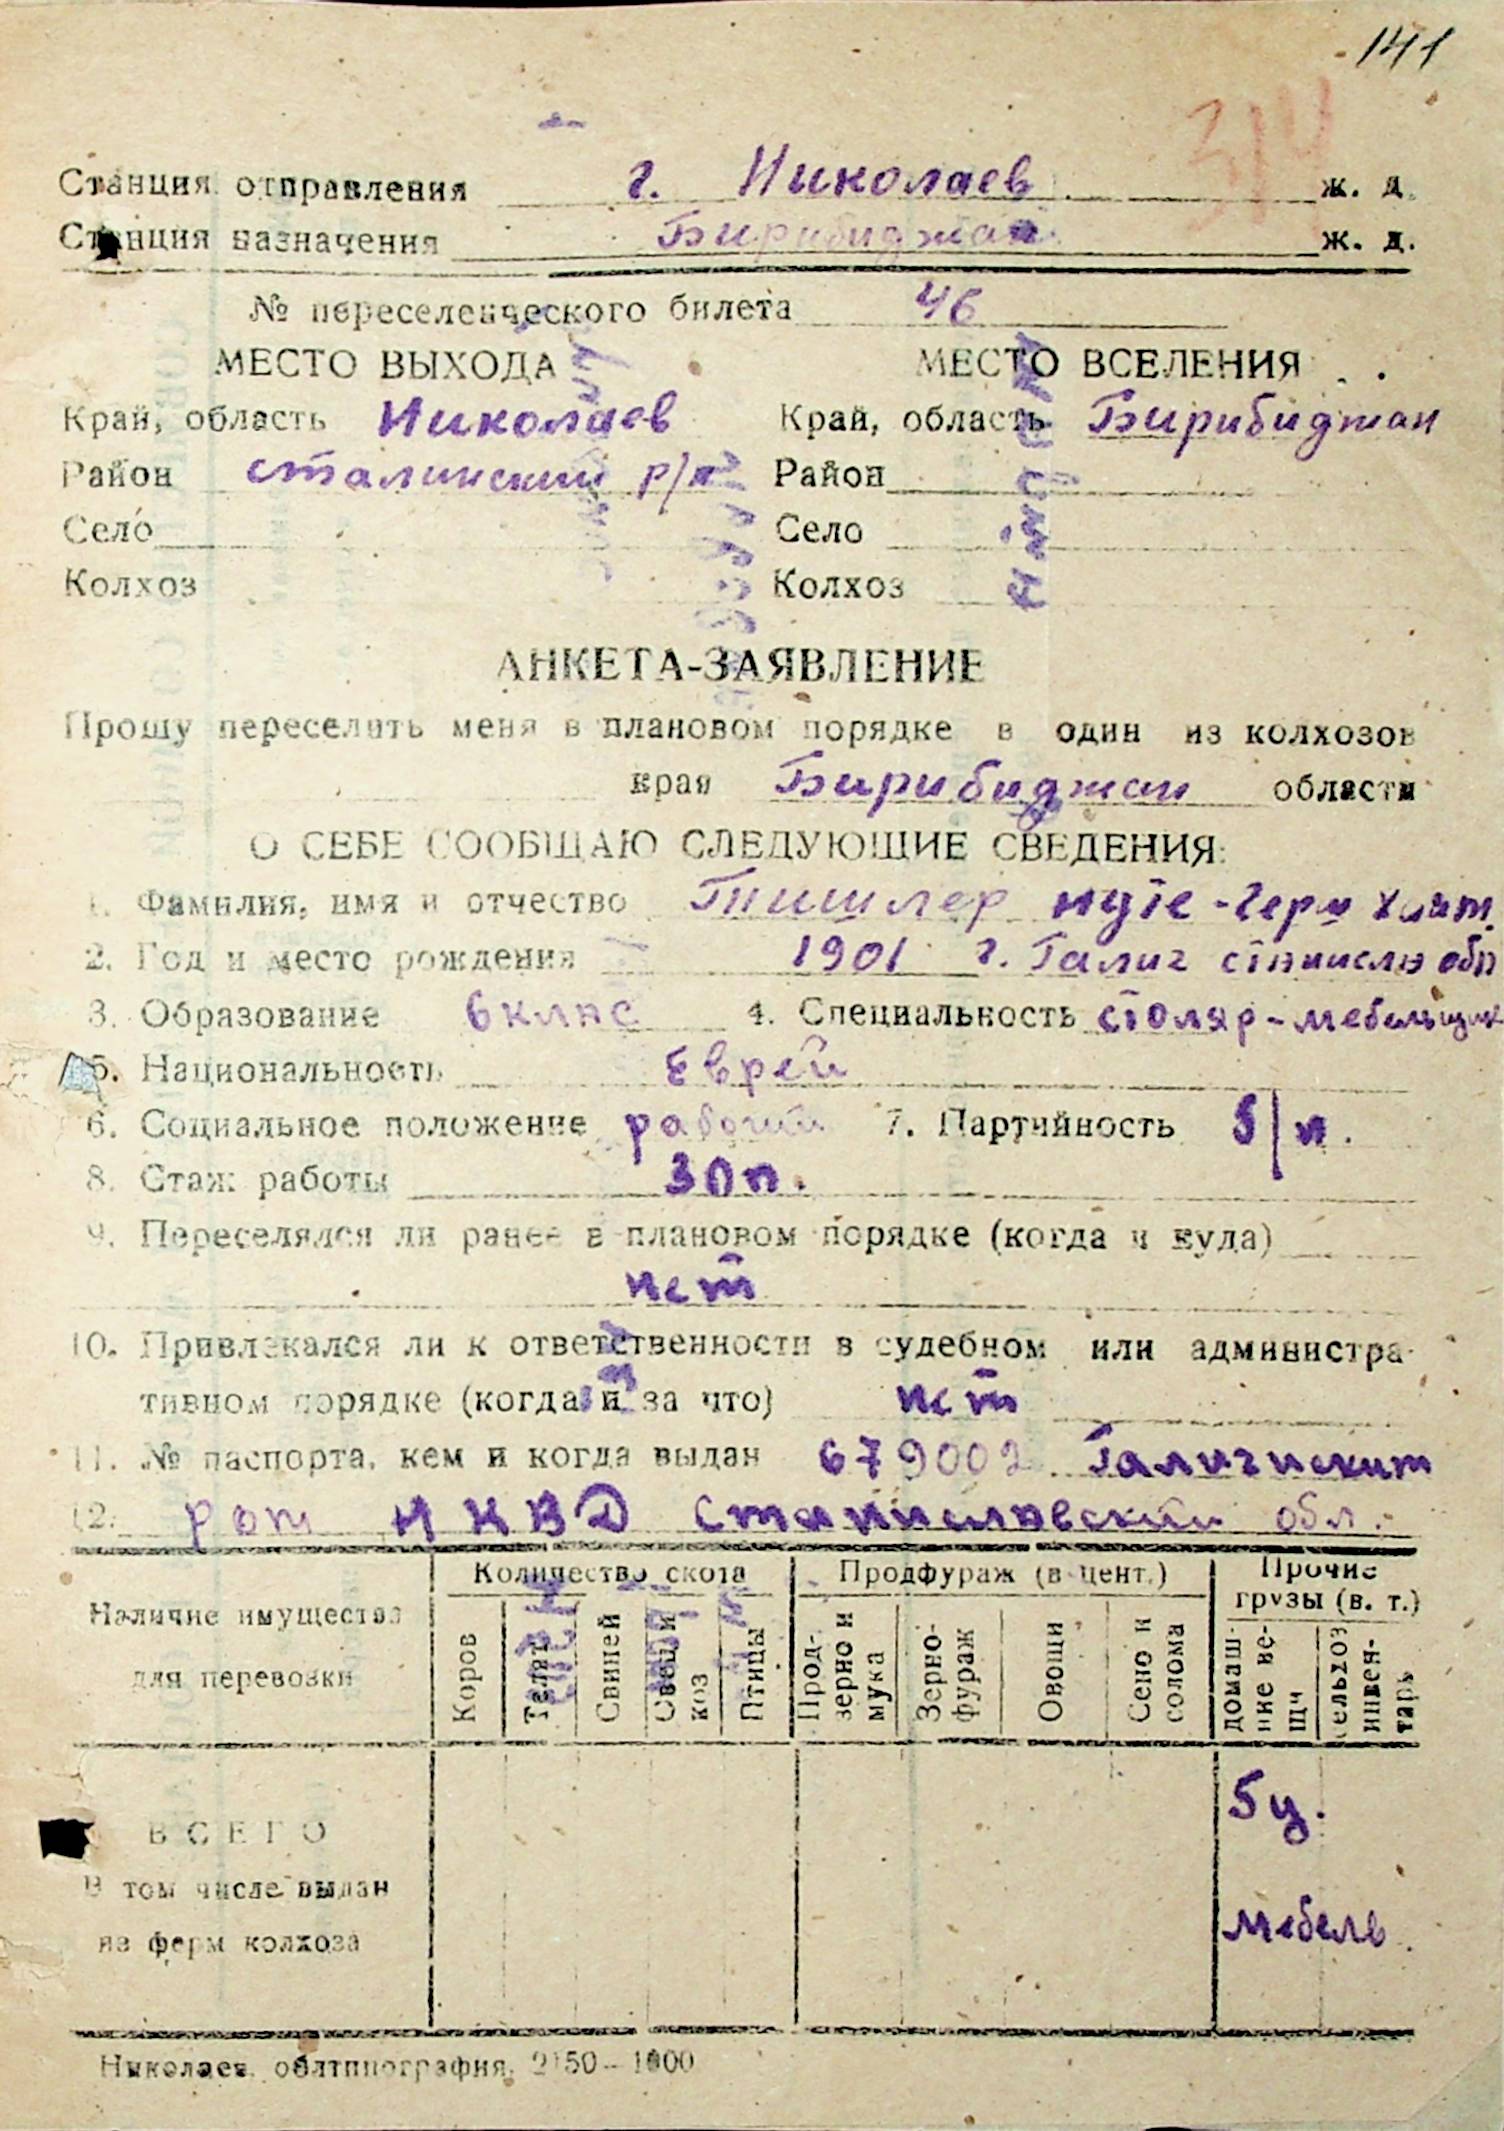 141
314
Станция отправления г. Николаев ж. д.
Станция назначения Бирибиджан ж. д.
№ переселенческого билета 46
МЕСТО ВЫХОДА МЕСТО ВСЕЛЕНИЯ
Край, область Николаев Край, область Бирибиджан
Район сталинский р/н Район
Село Село
Колхоз Колхоз
АНКЕТА-ЗАЯВЛЕНИЕ
Прошу переселить меня в плановом порядке в один из колхозов
края Бирибиджан области
О СЕБЕ СООБЩАЮ СЛЕДУЮЩИЕ СВЕДЕНИЯ:
1. Фамилия, имя и отчество Тишлер Нуте-Герш Хаим
2. Год и место рождения 1901 г. Галиг станисла обл
3. Образование 6 клас 4. Специальность столяр-мебельщик
5. Национальность Еврей
6. Социальное положение рабочий 7. Партийность б/п.
8. Стаж работы 30 л.
9. Переселялся ли ранее в плановом порядке (когда и куда)
нет
10. Привлекался ли к ответственности в судебном или администра-
тивном порядке (когда и за что) нет
11. № паспорта, кем и когда выдан 679002 Галигиским
12. рот НКВД Станиславский обл.
Наличие имущества для перевозки
Количество скота Продфураж (в цент.) Прочие грузы (в. т.)
Коров Телят Свиней Овец и коз Птицы Прод-зерно и мука Зерно-фураж Овощи Сено и солома домаш-ние ве-щи сельхоз инвен-тарь
ВСЕГО 5 ц.
В том числе выдан
из ферм колхоза мебель
Николаев, облтипография, 2150—1000